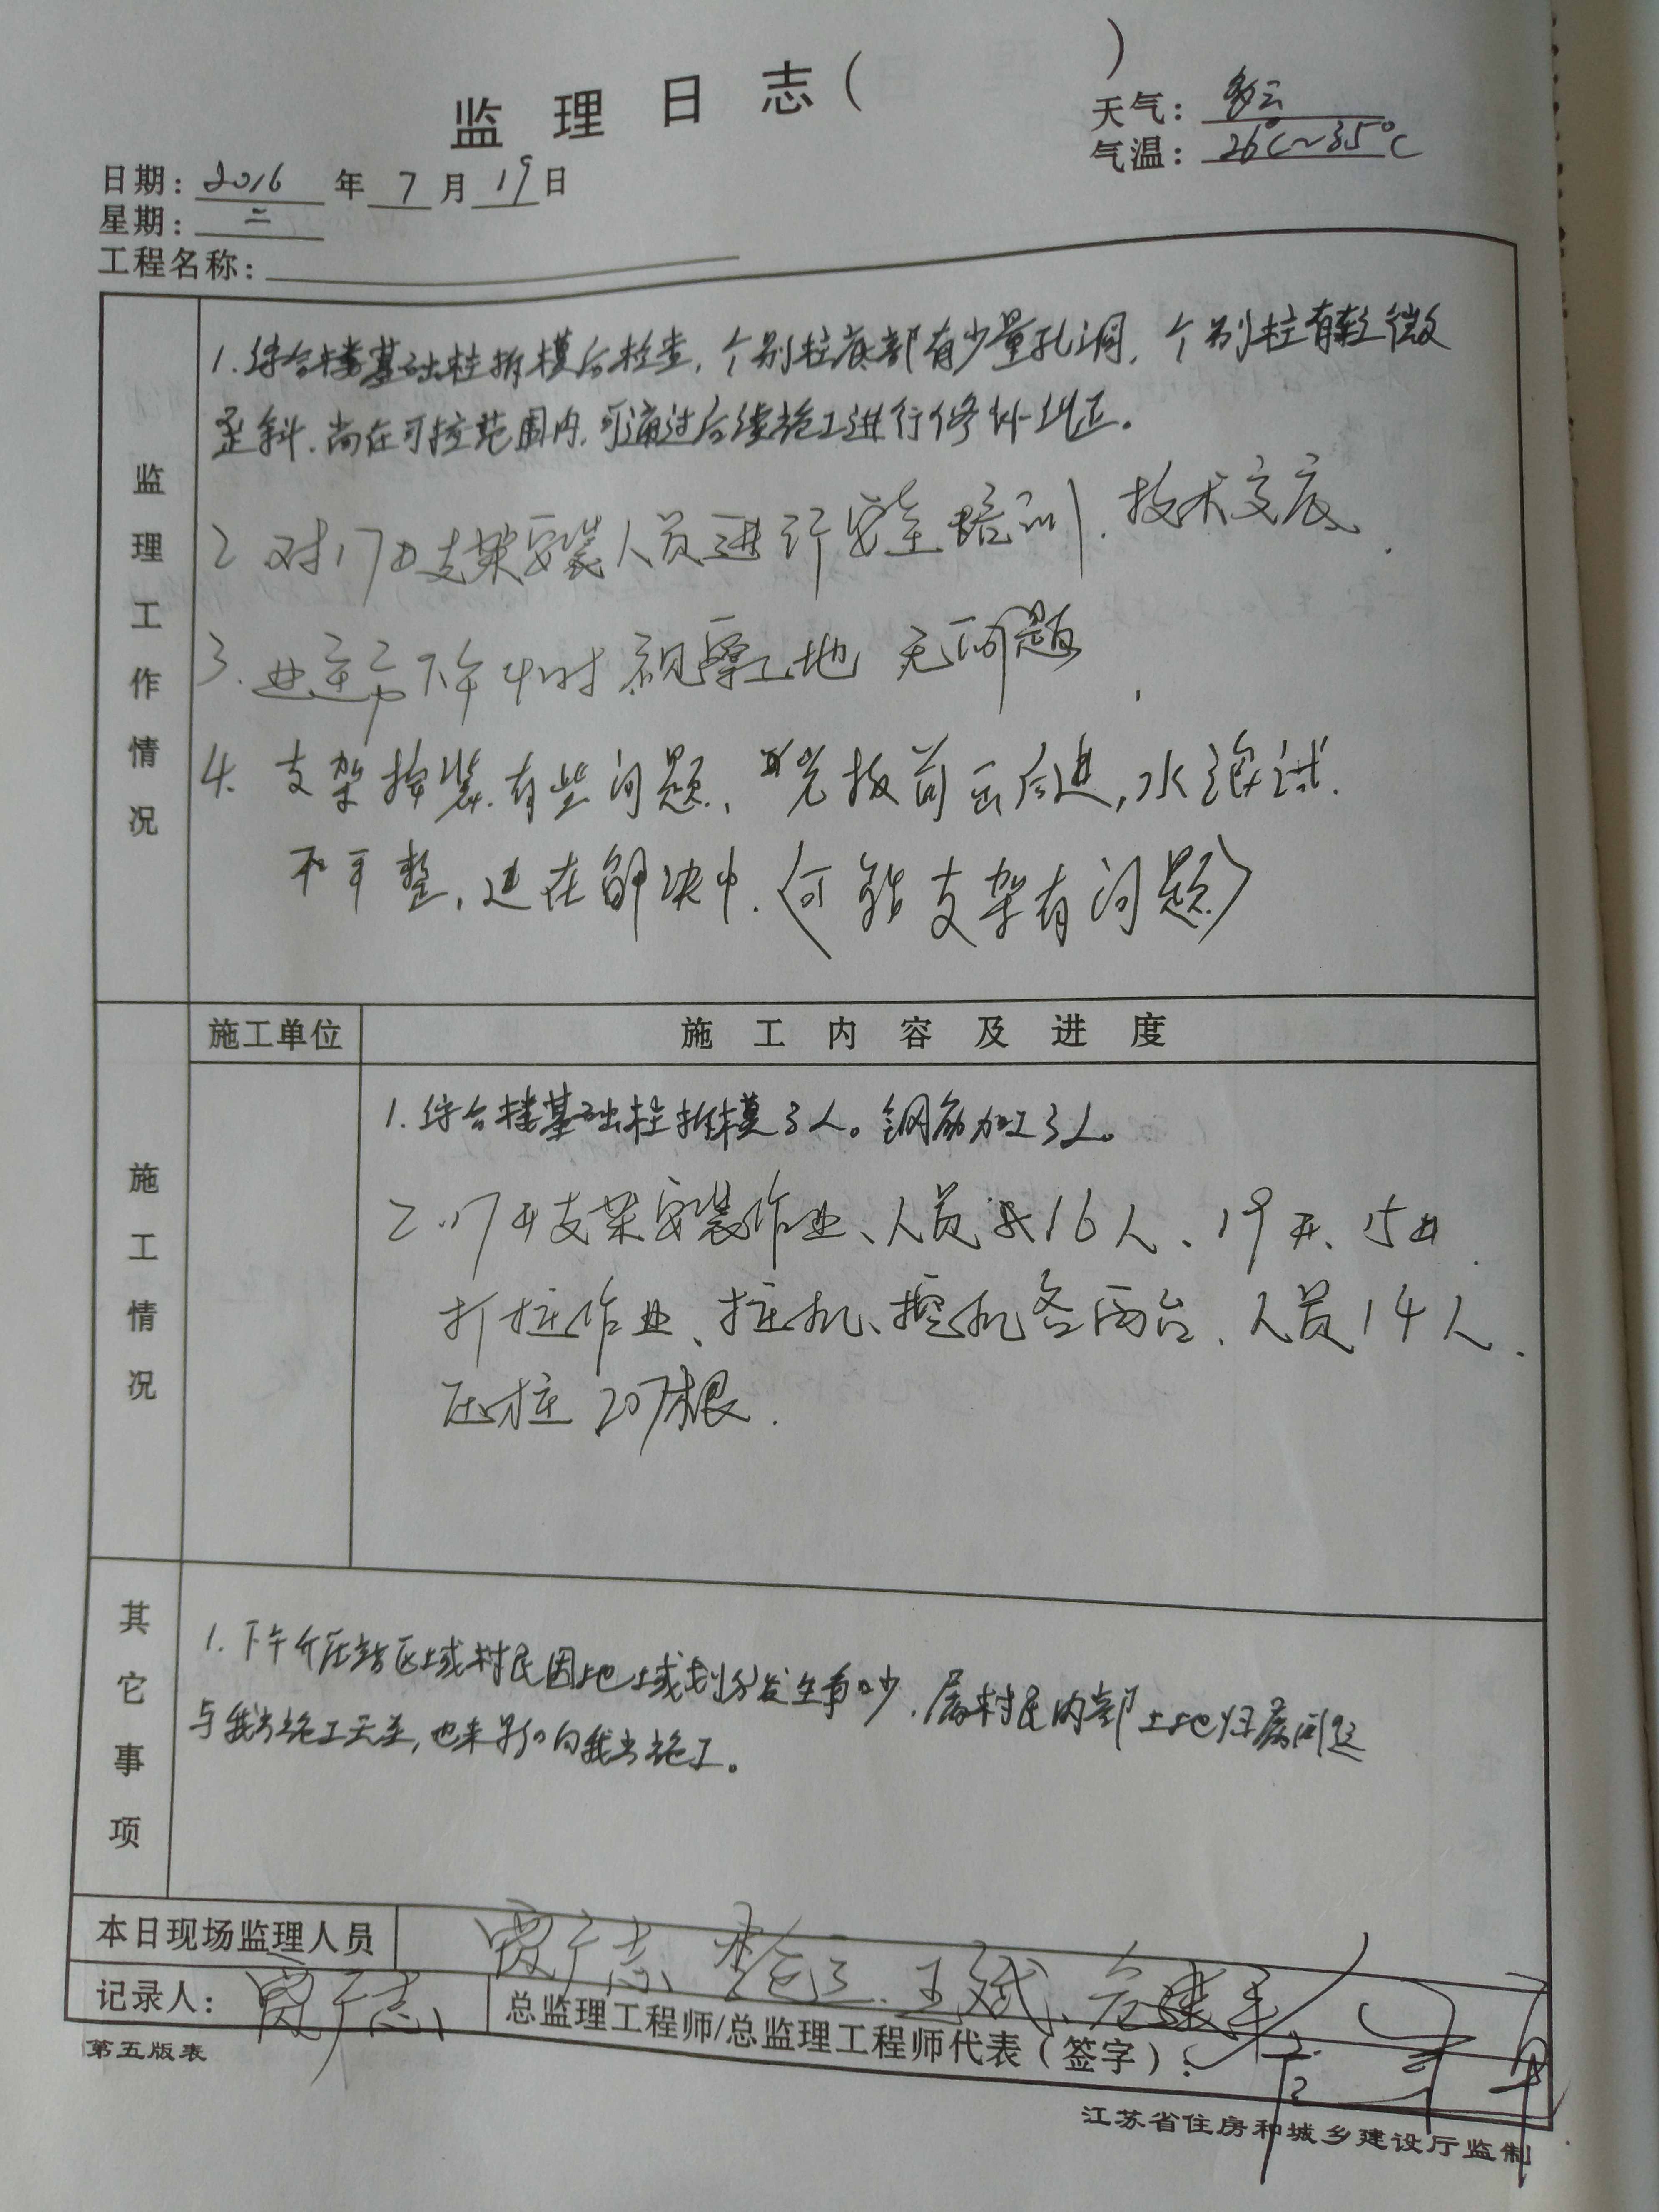 监理日志（ ）
天气：多云
气温：26℃～35℃
日期：2016年7月19日
星期：二
工程名称：
监理工作情况
1.综合楼基础柱拆模后检查，个别柱底部有少量孔洞，个别柱有轻微
歪斜.尚在可控范围内.可通过后续施工进行修补纠正。
2 对17#支架安装人员进行安全培训.技术交底.
3. 下午4时视察工地 无问题.
4. 支架按装.有些问题，光板前 后进，水泥
不平整，还在解决中.（可能支架有问题）
施工单位
施工内容及进度
施工情况
1.综合楼基础柱拆模3人。钢筋加工3人。
2.17#支架安装作业、人员共16人、19#、15#
打桩作业、桩机、挖机各两台.人员14人.
压桩207根.
其它事项
1.下午升压站区域村民因地域划分发生争吵.属村民内部土地归属问题
与我方施工无关，也未影响我方施工。
本日现场监理人员 贾广志、王斌、
记录人：贾广志
总监理工程师/总监理工程师代表（签字）：
第五版表
江苏省住房和城乡建设厅监制